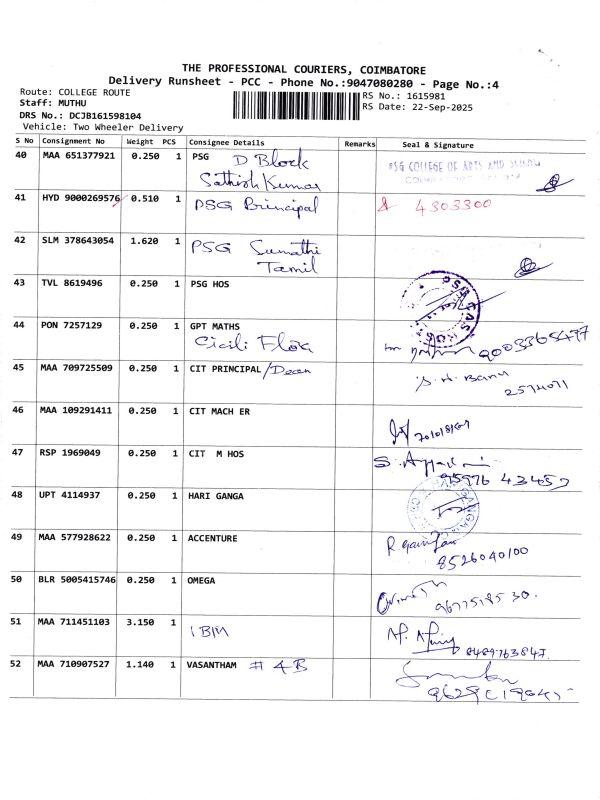 THE PROFESSIONAL COURIERS, COIMBATORE
Delivery Runsheet - PCC - Phone No.:9047080280 - Page No.:4
Route: COLLEGE ROUTE
Staff: MUTHU
DRS No.: DCJB161598104
Vehicle: Two Wheeler Delivery
RS No.: 1615981
RS Date: 22-Sep-2025
S No Consignment No Weight PCS Consignee Details Remarks Seal & Signature
40 MAA 651377921 0.250 1 PSG D Block PSG COLLEGE OF ARTS AND
Sathish Kumar
41 HYD 9000269576 0.510 1 PSG Principal 4303300
42 SLM 378643054 1.620 1 PSG Sumathi
Tamil
43 TVL 8619496 0.250 1 PSG HOS
44 PON 7257129 0.250 1 GPT MATHS 9003365477
45 MAA 709725509 0.250 1 CIT PRINCIPAL/Dean S. H. Banu
2574071
46 MAA 109291411 0.250 1 CIT MACH ER
47 RSP 1969049 0.250 1 CIT M HOS
48 UPT 4114937 0.250 1 HARI GANGA
49 MAA 577928622 0.250 1 ACCENTURE
8526040100
50 BLR 5005415746 0.250 1 OMEGA
51 MAA 711451103 3.150 1 IBM
8489763847
52 MAA 710907527 1.140 1 VASANTHAM # 4B